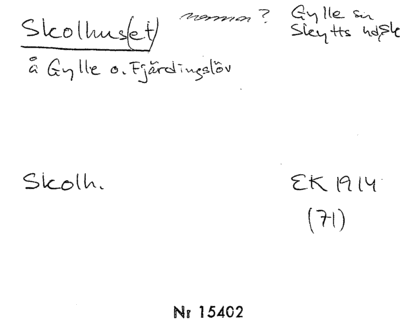 Skolhus(et) ? Gylle sn
Skytts hd, Sk
å Gylle o. Fjärdingslöv
Skolh. EK 1914
(71)
Nr 15402